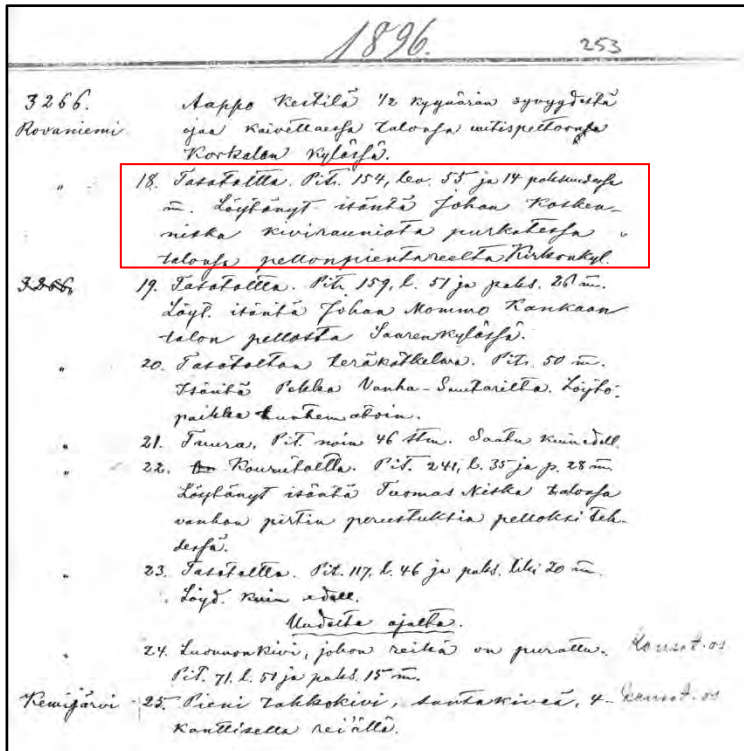 1896. 253
3266. Aappo Kestilä 1/2 kyynärän syvyydestä
Rovaniemi ojaa kaivettaessa talonsa
Korkalon kylässä.
" 18. Tasataltta. Pit. 154, lev. 55 ja 14 paksuudessa
m̄. Löytänyt isäntä Johan Kosken-
niska kivirauniota purkatessa
talonsa pellonpientareelta Kirkonkyl.
3266. 19. Tasataltta. Pit. 159, l. 51 ja paks. 26 m̄.
Löyt. isäntä Johan Mommo Kankaan
talon pellosta Saarenkylässä.
" 20. Tasataltan teräkatkelma. Pit. 50 m̄.
Isäntä Pekka Vanha-Suutarilta. Löytö-
paikka tuntematoin.
" 21. Tuura. Pit. noin 46 stm. Saatu kuin edell.
" 22. Kourutaltta. Pit. 241, l. 35 ja p. 28 m̄.
Löytänyt isäntä Tuomas Niska talonsa
vanhan pirtin perustuksia pelloksi teh-
dessä.
" 23. Tasataltta. Pit. 117, l. 46 ja paks. liki 20 m̄.
Löyd. kuin edell.
Uudelta ajalta.
" 24. Luonnonkivi, johon reikä on purattu. Kansat. os
Pit. 71, l. 51 ja paks. 15 m̄.
Kemijärvi 25. Pieni tahkokivi, santakiveä, 4- Kansat. os
kanttisella reiällä.